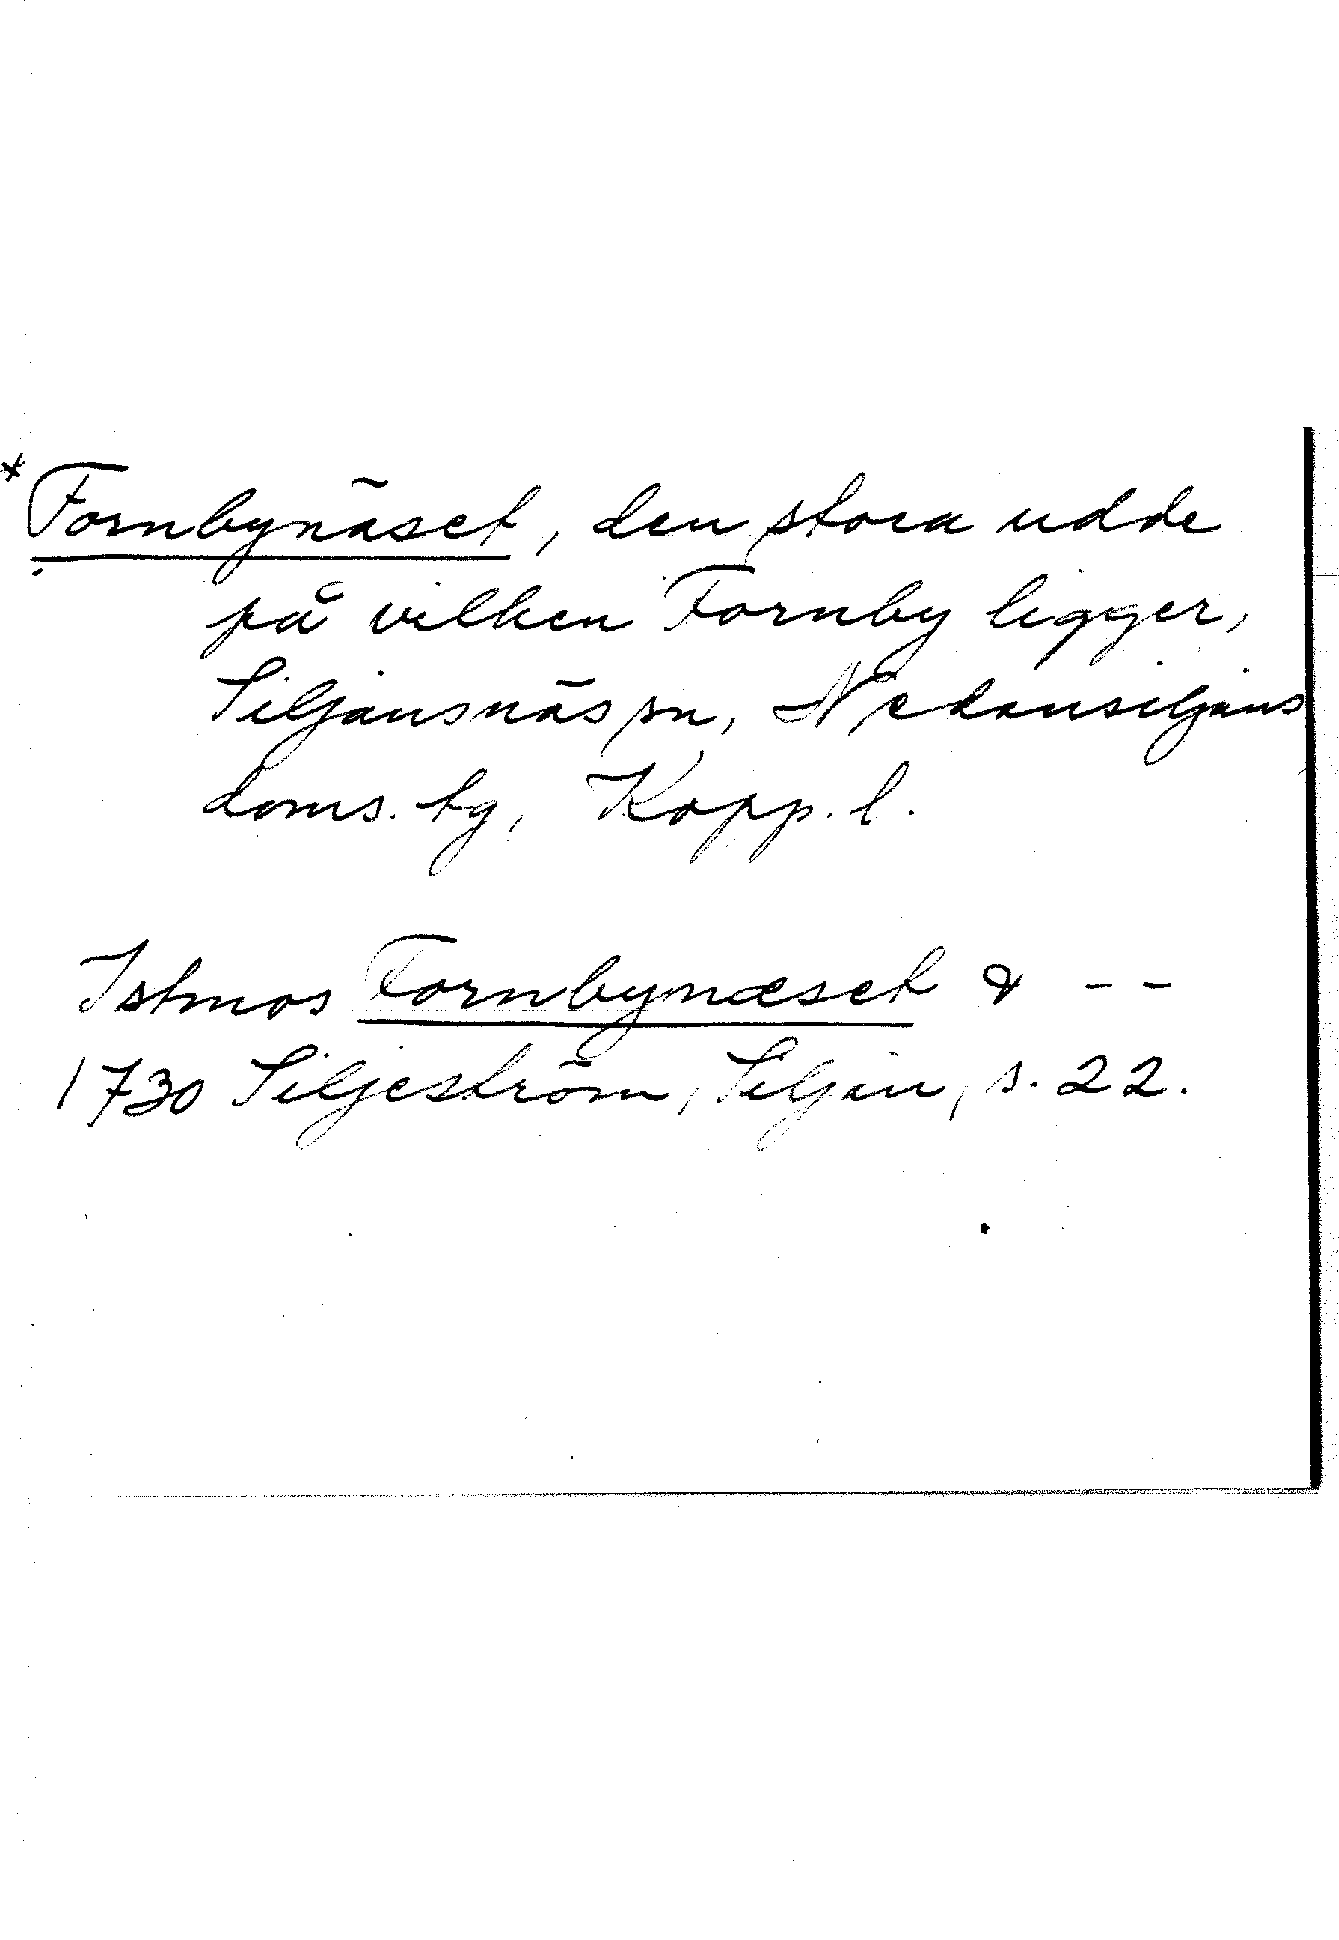 * Fornbynäset, den stora udde
på vilken Fornby ligger,
Siljansnäs sn, Nedansiljans
doms. tg, Kopp. l.
Istmos Fornbynæset & - -
1730 Siljeström, Siljan, s. 22.